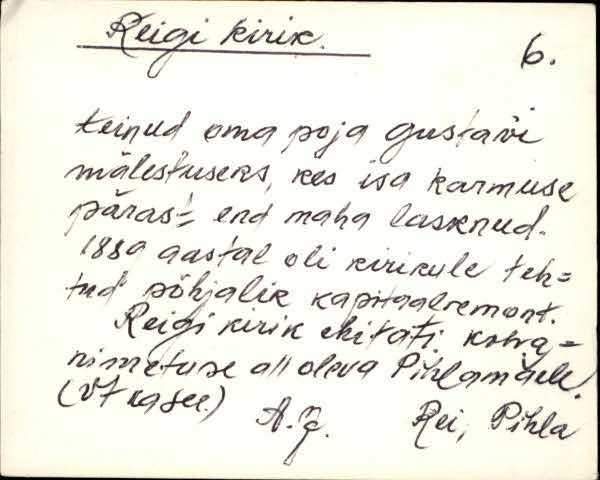 Reigi kirik.
6.
teinud oma poja Gustavi
mälestuseks, kes isa karmuse
päras't end maha lasknud.
1889 aastal oli kirikule teh=
tud põhjalik kapitaalremont.
Reigi kirik ehitati koha=
nimetuse all oleva Pihlamäele.
(Vt ka see.)
A. J. Rei, Pihla